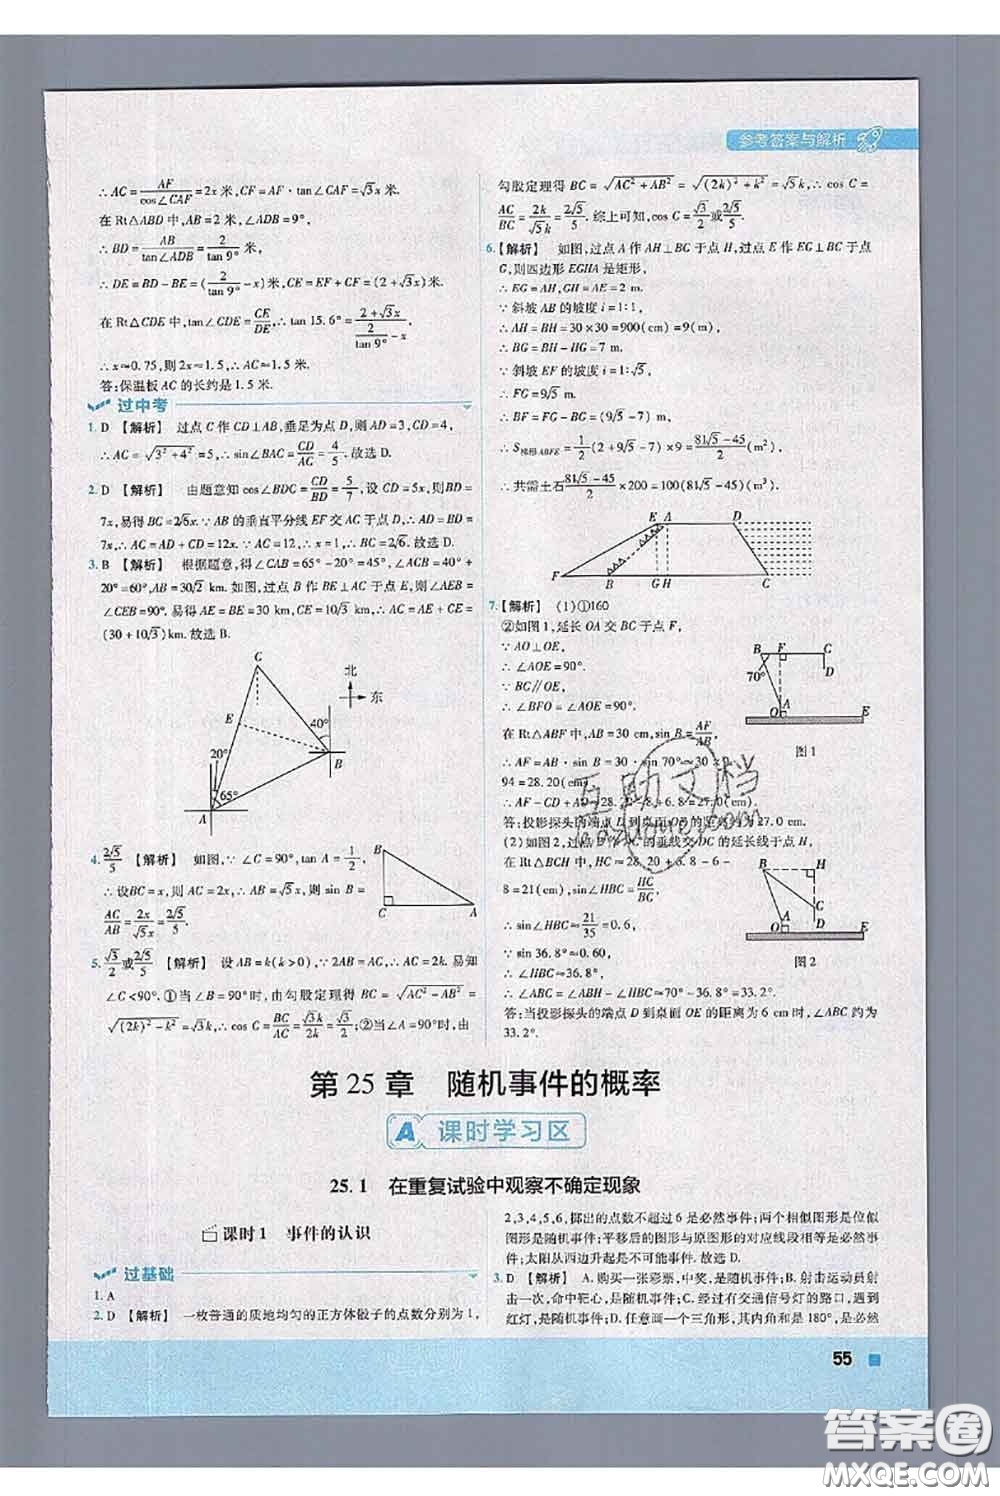 参考答案与解析
∴AC=AF/cos∠CAF=2x 米,CF=AF·tan∠CAF=√3x 米.
在 Rt△ABD 中,AB=2 米,∠ADB=9°,
∴BD=AB/tan∠ADB=2/tan 9° 米,
∴DE=BD-BE=(2/tan 9°-x)米,CE=EF+CF=(2+√3x)米.
在 Rt△CDE 中,tan∠CDE=CE/DE,∴tan 15.6°=(2+√3x)/(2/tan 9°-x)
∴x≈0.75,则2x≈1.5,∴AC≈1.5 米.
答:保温板 AC 的长约是 1.5 米.
过中考
1. D 【解析】 过点 C 作 CD⊥AB,垂足为点 D,则 AD=3,CD=4,
∴AC=√(3²+4²)=5,∴sin∠BAC=CD/AC=4/5.故选D.
2. D 【解析】 由题意知 cos∠BDC=CD/BD=5/7,设 CD=5x,则 BD=
7x,易得 BC=2√6x.∵AB 的垂直平分线 EF 交 AC 于点 D,∴AD=BD=
7x,∴AC=AD+CD=12x.∵AC=12,∴x=1,∴BC=2√6.故选 D.
3. B 【解析】 根据题意,得∠CAB=65°-20°=45°,∠ACB=40°+
20°=60°,AB=30√2 km.如图,过点 B 作 BE⊥AC 于点 E,则∠AEB=
∠CEB=90°.易得 AE=BE=30 km,CE=10√3 km,∴AC=AE+CE=
(30+10√3)km.故选 B.
C
北
东
E
40°
20°
B
65°
A
4. 2√5/5 【解析】 如图,∵∠C=90°,tan A=1/2,
∴设BC=x,则 AC=2x,∴AB=√5x,则 sin B=
AC/AB=2x/√5x=2√5/5.
B
C
A
5. √3/2或2√5/5 【解析】 设 AB=k(k>0),∵2AB=AC,∴AC=2k.易知
∠C<90°.①当∠B=90°时,由勾股定理得 BC=√(AC²-AB²)=
√((2k)²-k²)=√3k,∴cos C=BC/AC=√3k/2k=√3/2;②当∠A=90°时,由
勾股定理得 BC=√(AC²+AB²)=√((2k)²+k²)=√5k,∴cos C=
AC/BC=2k/√5k=2√5/5.综上可知,cos C=√3/2或2√5/5.
6.【解析】 如图,过点 A 作 AH⊥BC 于点 H,过点 E 作 EG⊥BC 于点
G,则四边形 EGHA 是矩形,
∴EG=AH,GH=AE=2 m.
∵斜坡 AB 的坡度 i=1:1,
∴AH=BH=30×30=900(cm)=9(m),
∴BG=BH-HG=7 m.
∵斜坡 EF 的坡度 i=1:√5,
∴FG=9√5 m,
∴BF=FG-BG=(9√5-7)m,
∴S梯形ABFE=1/2(2+9√5-7)×9=(81√5-45)/2(m²)
∴共需土石(81√5-45)/2×200=100(81√5-45)(m³).
E A D
F B G H C
7.【解析】 (1)①160
②如图 1,延长 OA 交 BC 于点 F,
∵AO⊥OE,
∴∠AOE=90°.
∵BC∥OE,
∴∠BFO=∠AOE=90°.
在 Rt△ABF 中,AB=30 cm,sin B=AF/AB,
∴AF=AB·sin B=30·sin 70°≈30×
94=28.20(cm)
∴AF-CD+AO≈28.20-6.8+6.8=27.0(cm)
答:投影探头的端点 D 到桌面 OE 的距离约为27.0 cm.
(2)如图 2,过点 B 作 DC 的垂线交 DC 的延长线于点 H,
在 Rt△BCH 中,HC≈28.20+6.8-6-
8=21(cm),sin∠HBC=HC/BC,
∴sin∠HBC≈21/35=0.6,
∵sin 36.8°≈0.60,
∴∠HBC≈36.8°,
∴∠ABC=∠ABH-∠HBC≈70°-36.8°=33.2°.
答:当投影探头的端点 D 到桌面 OE 的距离为 6 cm 时,∠ABC 约为
33.2°.
B F C
D
70°
A
O E
图 1
B H
C
A
O D E
图 2
第 25 章 随机事件的概率
A 课时学习区
25.1 在重复试验中观察不确定现象
课时1 事件的认识
过基础
1. A
2. D 【解析】 一枚普通的质地均匀的正方体骰子的点数分别为 1,
2,3,4,5,6,掷出的点数不超过 6 是必然事件;两个相似图形是位似
图形是随机事件;平移后的图形与原图形的对应线段相等是必然事
件;太阳从西边升起是不可能事件.故选 D.
3. D 【解析】 A.购买一张彩票,中奖,是随机事件;B.射击运动员射
击一次,命中靶心,是随机事件;C.经过有交通信号灯的路口,遇到
红灯,是随机事件;D.任意画一个三角形,其内角和是 180°,是必然
55
互助文档
答案圈
MXQE.COM